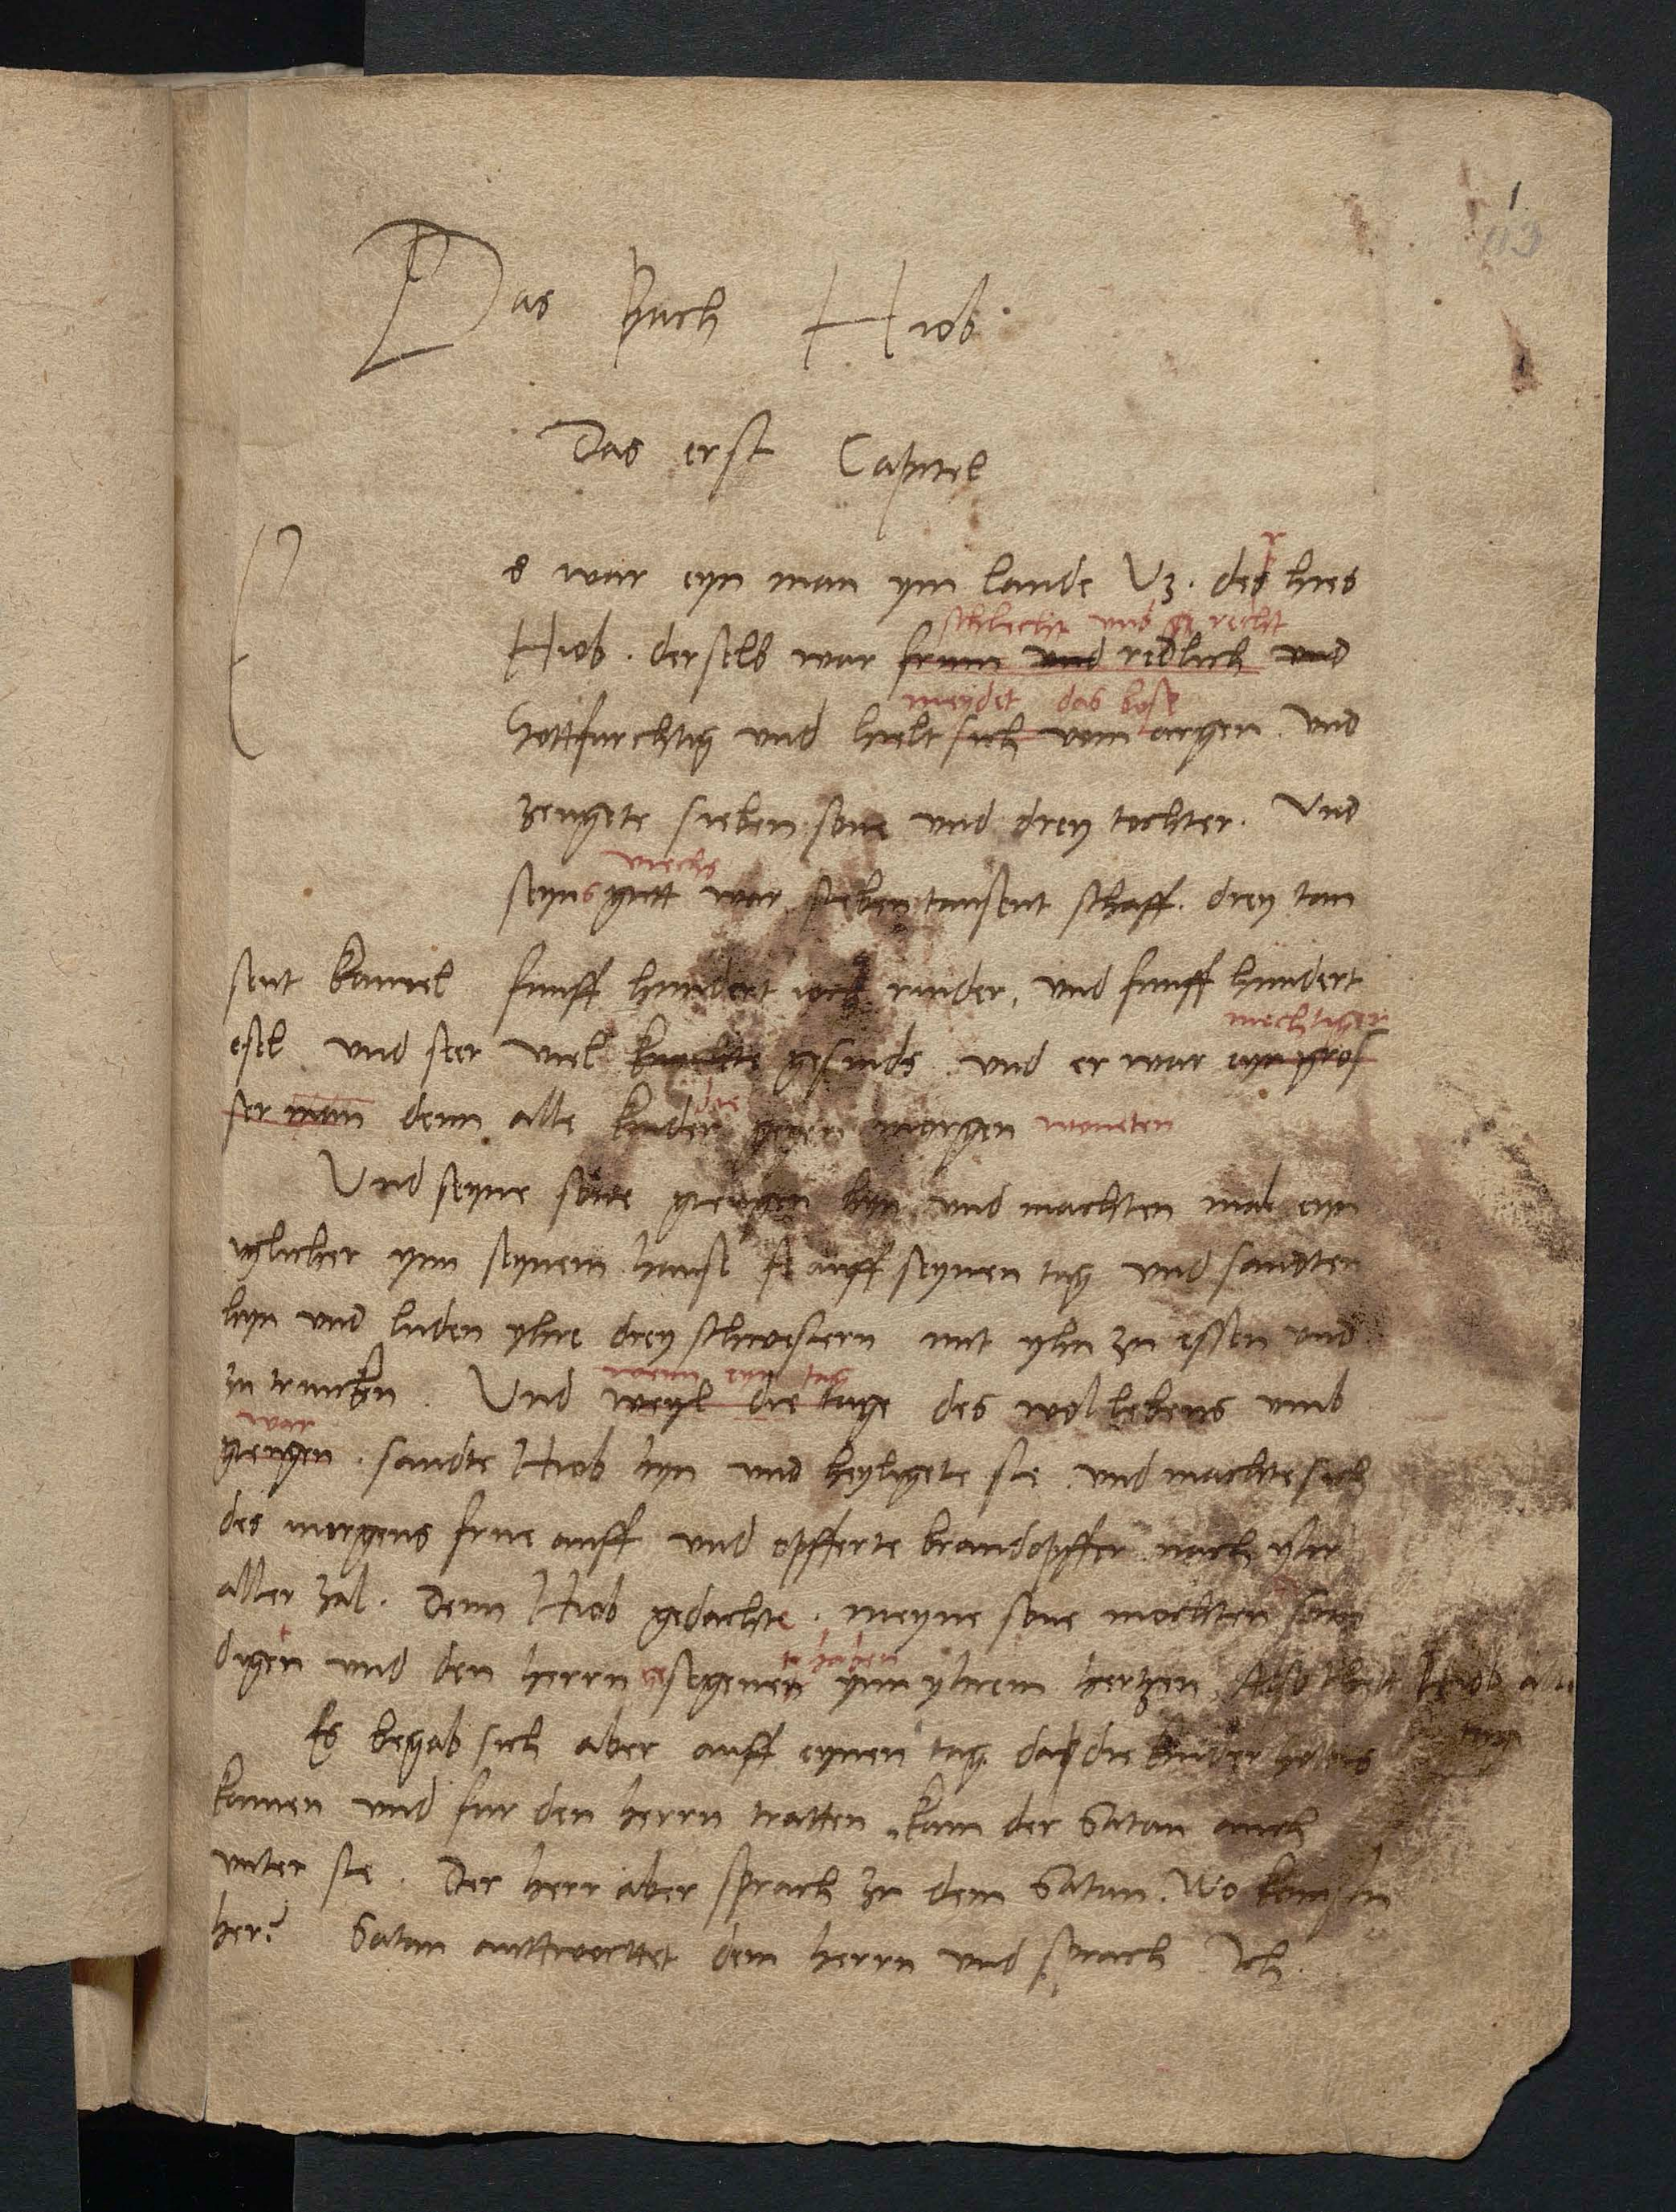 1
Das Buch Hiob
Das erst Capitel
Es war eyn man ym lande Uz. der hies
schlecht und recht
Hiob. derselb war frum und redlich und
meydet das bose
Gottfurchtig und hielt sich vom argen. Und
zeugete sieben sone und drey tochter. Und
viechs
seyns gutt war sieben tausent schaff. drey tau
sent kamel funff hundert ioch rinder, und funff hundert
mechtiger
esel und seer viel knechte gesinds. und er war eyn gros
die
ser man denn alle kinder gegen morgen woneten
Und seyne sone giengen hyn und machten mal eyn
iglicher ynn seynem hause auff seynen tag und sandten
hyn und luden yhre drey schwestern mit yhn zu essen und
wenn eyn tag
zu trincken. Und weyl die tage des wollebens umb
war
giengen. sandte Hiob hyn und heyligete sie. und machte sich
des morgens frue auff und opfferte brandopffer nach yhr
aller zal. Denn Hiob gedachte. meyne sone mochten sun
haben
digen und den herrn gesegenen ynn yhrem hertzen Also thett Hiob alle
tage
Es begab sich aber auff eynen tag da die kinder Gottis
kamen und fur den herrn tratten, kam der Satan auch
unter sie. Der herr aber sprach zu dem Satan. Wo kompstu
her? Satan antworttet dem herrn und sprach Ich